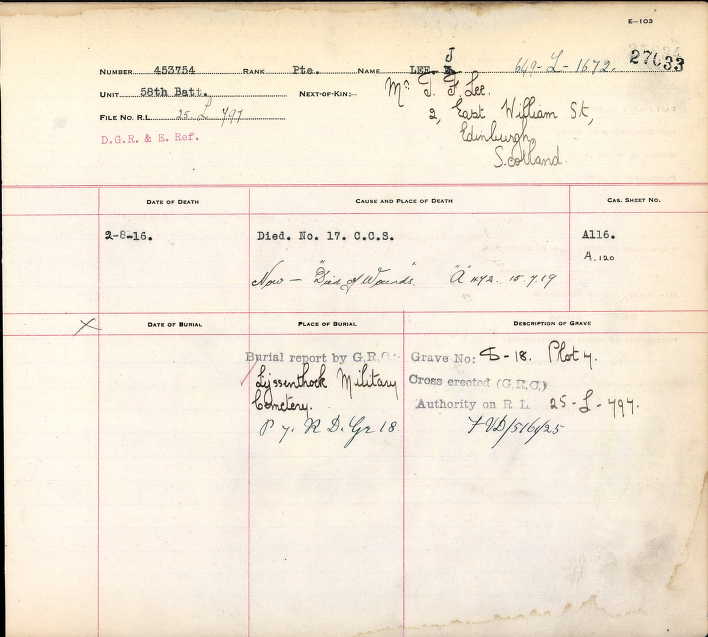 E-103
27033
NUMBER 453754 RANK Pte. NAME LEE. J 649-L-1672.
UNIT 58th Batt. NEXT-OF-KIN:- Mr T. F Lee.
2, East William St,
FILE NO. R.L. 25-L-797
Edinburgh,
D.G.R. & E. Ref.
Scotland.
DATE OF DEATH CAUSE AND PLACE OF DEATH CAS. SHEET NO.
2-8-16. Died. No. 17. C.C.S. A116.
A.120
Now - "Died of Wounds" "A" 15.7.19
X DATE OF BURIAL PLACE OF BURIAL DESCRIPTION OF GRAVE
Burial report by G.R.C:- Grave No: D-18. Plot 7.
Lijssenthoek Military Cross erected (G.R.C.)
Cemetery. Authority on R L 25-L-797.
P 7. R D. Gr 18.